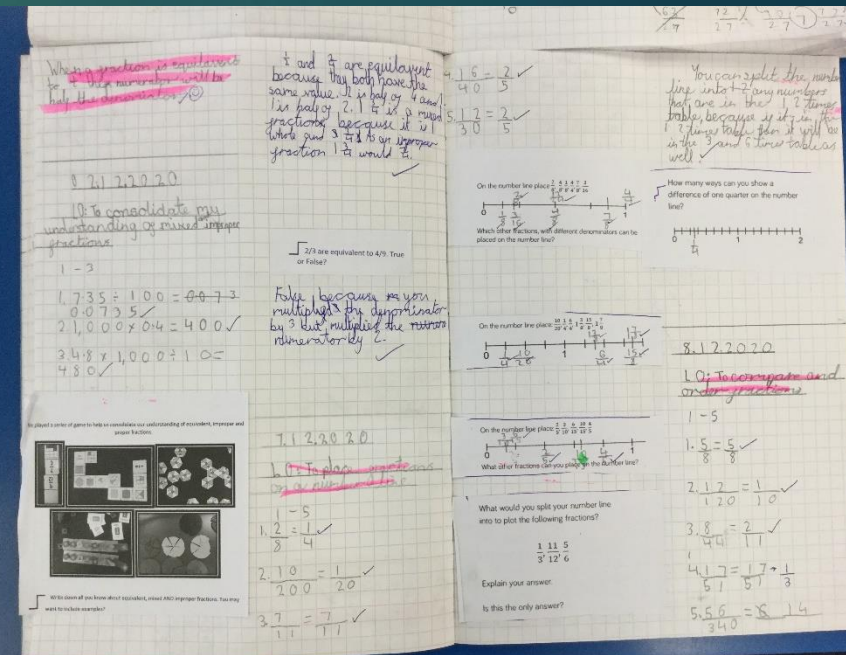 When a fraction is equilavent
to ½ the numerator will be
half the denominator
0 2.1 2.2 0 2 0
LO: To consolidate my
understanding of mixed improper
fractions
1 - 3
1. 735 ÷ 100 = 0073
00735
2. 1,000 × 0.4 = 400
3. 4.8 × 1,000 ÷ 10 =
480
We played a series of game to help us consolidate our understanding of equivalent, improper and
proper fractions.
Write down all you know about equivalent, mixed AND improper fractions. You may
want to include examples?
and are equilavent
because they both have the
same value. 2 is half of 4 and
1 is half of 2. 1 ¾ is a mixed
fraction, because it is 1
whole and ¾. As an improper
fraction 1 ¾ would
2/3 are equivalent to 4/9. True
or False?
False, because you
multiplied the denominator
by 3 but multiplied the
numerator by 2.
7.1 2.2 0 2 0
LO: To place
on a number line
1 - 5
1. 2/8 = 1/4
2. 10/200 = 1/20
3. 7/11 = 7/11
4. 16/40 = 2/5
5. 12/30 = 2/5
On the number line place
0 1
Which other fractions, with different denominators can be
placed on the number line?
On the number line place
0 1
On the number line place
0 1
What other fractions can you place on the number line?
What would you split your number line
into to plot the following fractions?
1/3, 11/12, 5/6
Explain your answer.
Is this the only answer?
You can split the number
line into 12 any numbers
that are in the 12 times
table, because if it's in the
12 times table then it will be
in the 3 and 6 times table as
well.
How many ways can you show a
difference of one quarter on the number
line?
0 1 2
8.1 2.2 0 2 0
LO: To compare and
order fractions
1 - 5
1. 5/8 = 5/8
2. 12/120 = 1/10
3. 8/44 = 2/11
4. 17/51 = 17/51 1/3
5. 56/340 = 14